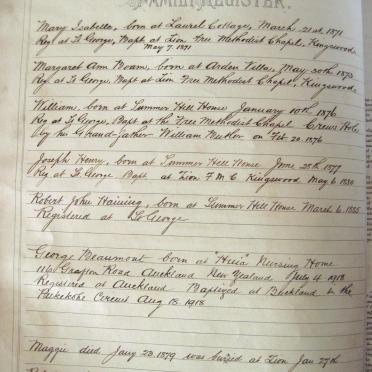 FAMILY REGISTER.
Mary Isabella, born at Laurel Cottage, March 21st 1871
Regd at St George, Bapt at Zion Free Methodist Chapel, Kingswood
May 7. 1871
Margaret Ann Moam, born at Arden Villa, May 30th 1873
Reg at St George, Bapt at Zion Free Methodist Chapel, Kingswood
William, born at Summer Hill House January 10th 1876
Reg at St George, Bapt at the Free Methodist Chapel Crews Hole
by his Grand-father William Butler on Feb. 20. 1876
Joseph Henry, born at Summer Hill House June 28th 1877
Reg at St George Bapt at Zion F M C Kingswood May 6 1880
Robert John Haining, born at Summer Hill House March 6. 1885
Registered at St George
George Beaumont born at "Huia" Nursing Home
Grafton Road Auckland New Zealand July 4 1918
Registered at Auckland Baptized at Buckland in the
Pukekohe Circuit Aug 18 1918
Maggie died Jany 23. 1879 was buried at Zion Jan 27th